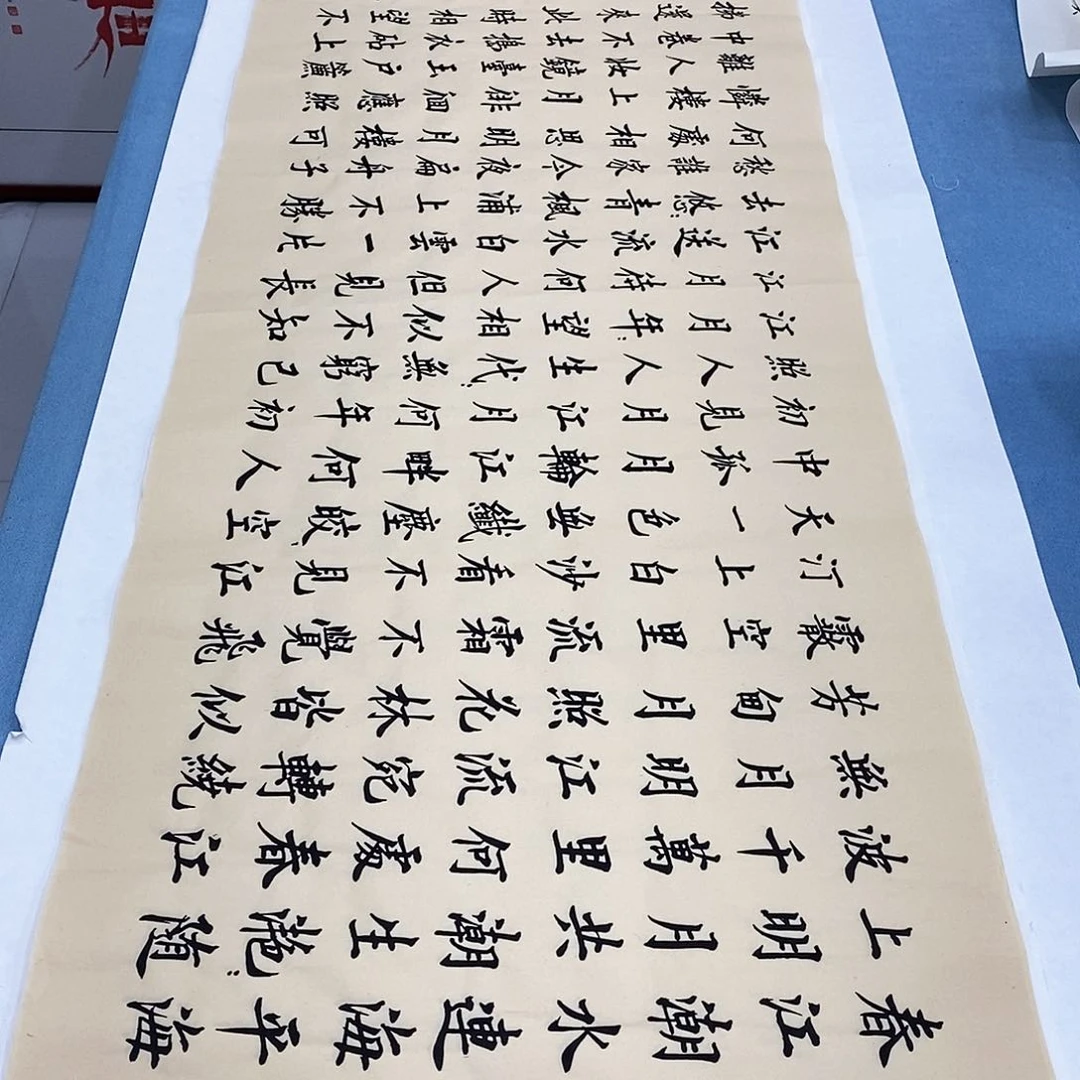 春江潮水連海平海
上明月共潮生滟〻随
波千萬里何處春江
無月明江流宛轉繞
芳甸月照花林皆似
霰空里流霜不覺飛
汀上白沙看不見江
天一色無纖塵皎〻空
中孤月輪江畔何人
初見月江月何年初
照人人生代〻無窮已
江月年〻望相似不知
江月待何人但見長
江送流水白雲一片
去悠〻青楓浦上不勝
愁誰家今夜扁舟子
何處相思明月樓可
憐樓上月徘徊應照
離人妝鏡臺玉户簾
中卷不去擣衣砧上
拂還來此時相望不